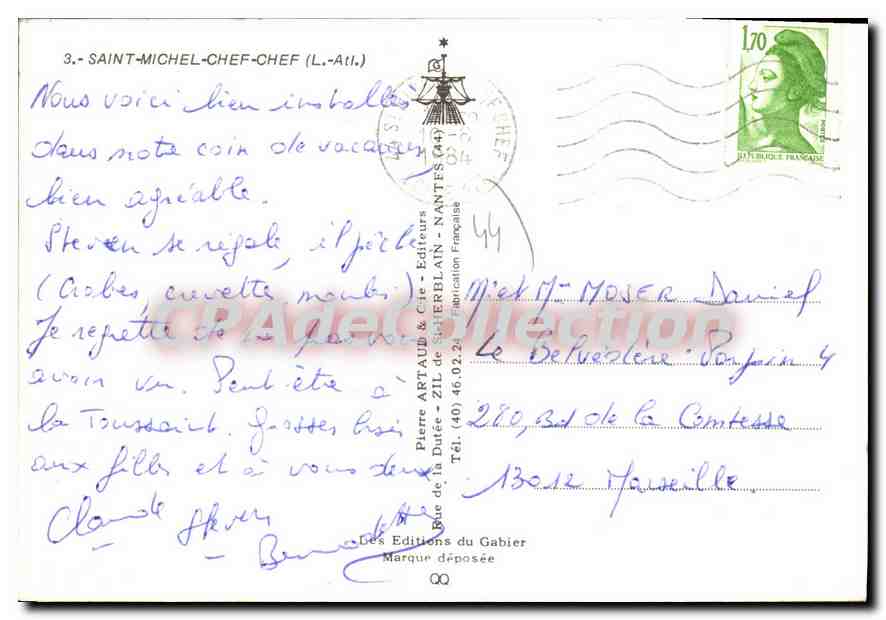 3.- SAINT-MICHEL-CHEF-CHEF (L.-Atl.)
Nous voici bien installés
dans notre coin de vacances
bien agréable.
Steven se régale, il pêche
(Crabes, crevette, moules).
Je regrette de ne pas vous
avoir vu. Peut-être à
la Toussaint. Grosses bises
aux filles et à vous deux
Claude Steven
Bernadette
Pierre ARTAUD & Cie - Editeurs
Rue de la Dutée - ZIL de St-HERBLAIN - NANTES (44)
Tél. (40) 46.02.24 Fabrication Française
Les Editions du Gabier
Marque déposée
QQ
1,70
POSTES
REPUBLIQUE FRANÇAISE
44
Mr et Mme MOSER Daniel
Le Belvédère 4
280, Bd de la Comtesse
13012 Marseille
CPAdeCollection